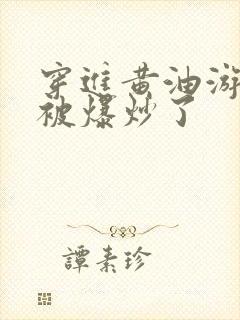 穿进黄油游
被爆炒了
譚素珍